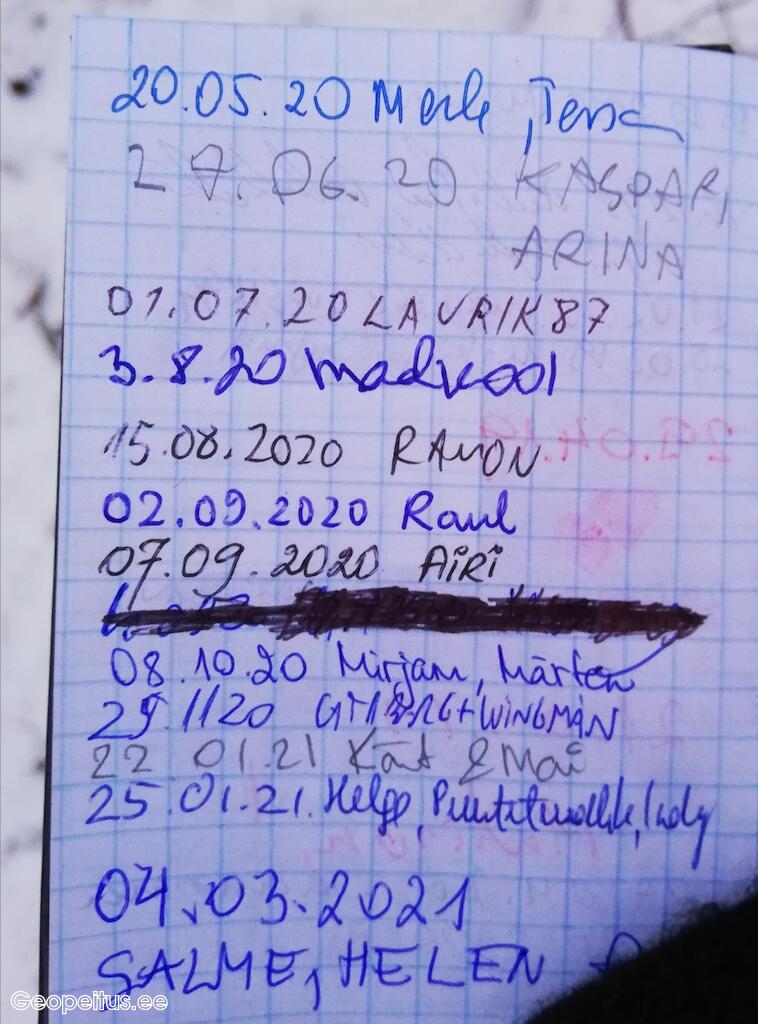 20.05.20 Merle, Tessa
27.06.20 KASPAR,
ARINA
01.07.20 LAURIK87
3.8.20 madkool
15.08.2020 RAMON
02.09.2020 Raul
07.09.2020 AIRI
08.10.20 Mirjam, Märten
29.11 20 +WINGMAN
22 01.21 Kät & Mai
25.01.21. Helge,
04.03.2021
SALME, HELEN
Geopeitus.ee